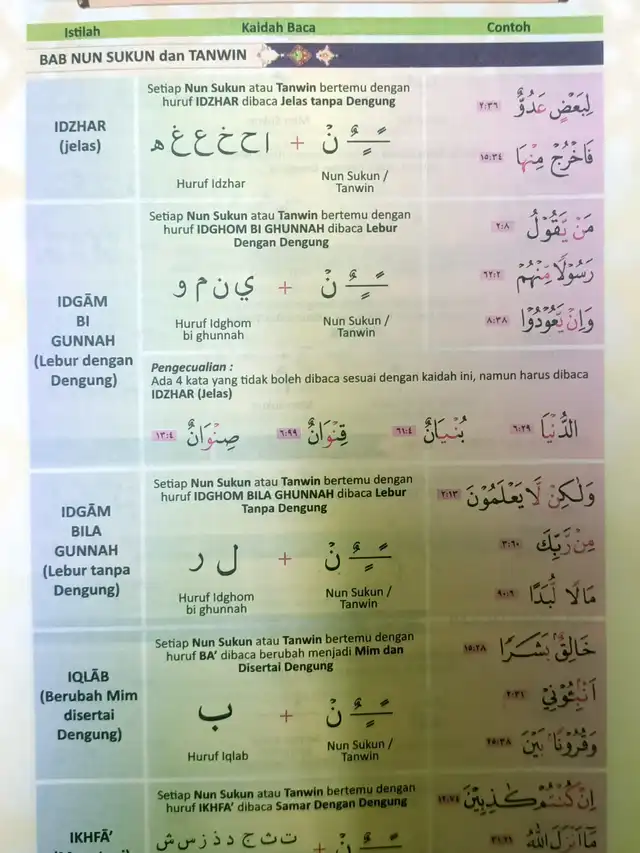 Istilah Kaidah Baca Contoh
BAB NUN SUKUN dan TANWIN
IDZHAR
(jelas)
Setiap Nun Sukun atau Tanwin bertemu dengan
huruf IDZHAR dibaca Jelas tanpa Dengung
ا ح خ ع غ ه + نْ ـًـٍـٌ
Huruf Idzhar
Nun Sukun /
Tanwin
لِبَعْضٍ عَدُوٌّ ٢:٣٦
فَاخْرُجْ مِنْهَا ١٥:٣٤
IDGĀM
BI
GUNNAH
(Lebur dengan
Dengung)
Setiap Nun Sukun atau Tanwin bertemu dengan
huruf IDGHOM BI GHUNNAH dibaca Lebur
Dengan Dengung
ي ن م و + نْ ـًـٍـٌ
Huruf Idghom
bi ghunnah
Nun Sukun /
Tanwin
مَنْ يَّقُوْلُ ٢:٨
رَسُوْلًا مِّنْهُمْ ٦٢:٢
وَاِنْ يَّعُوْدُوْا ٨:٣٨
Pengecualian :
Ada 4 kata yang tidak boleh dibaca sesuai dengan kaidah ini, namun harus dibaca
IDZHAR (Jelas)
الدُّنْيَا ٦:٢٩ بُنْيَانٌ ٦١:٤ قِنْوَانٌ ٦:٩٩ صِنْوَانٌ ١٣:٤
IDGĀM
BILA
GUNNAH
(Lebur tanpa
Dengung)
Setiap Nun Sukun atau Tanwin bertemu dengan
huruf IDGHOM BILA GHUNNAH dibaca Lebur
Tanpa Dengung
ل ر + نْ ـًـٍـٌ
Huruf Idghom
bi ghunnah
Nun Sukun /
Tanwin
وَلٰكِنْ لَّا يَعْلَمُوْنَ ٢:١٣
مِنْ رَّبِّكَ ٣:٦٠
مَالًا لُّبَدًا ٩٠:٦
IQLĀB
(Berubah Mim
disertai
Dengung)
Setiap Nun Sukun atau Tanwin bertemu dengan
huruf BA’ dibaca berubah menjadi Mim dan
Disertai Dengung
ب + نْ ـًـٍـٌ
Huruf Iqlab
Nun Sukun /
Tanwin
خَالِقٌۢ بَشَرًا ١٥:٢٨
اَنْۢبِـُٔوْنِيْ ٢:٣١
وَقُرُوْنًاۢ بَيْنَ ٢٥:٣٨
IKHFĀ’
Setiap Nun Sukun atau Tanwin bertemu dengan
huruf IKHFA’ dibaca Samar Dengan Dengung
ت ث ج د ذ ز س ش + نْ
اِنْ كُنْتُمْ كٰذِبِيْنَ ١٢:٧٤
مَا اَنْزَلَ اللّٰهُ